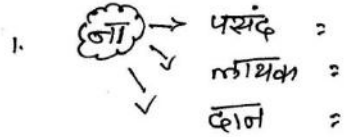 1. ना → पसंद =
लायक =
दान =